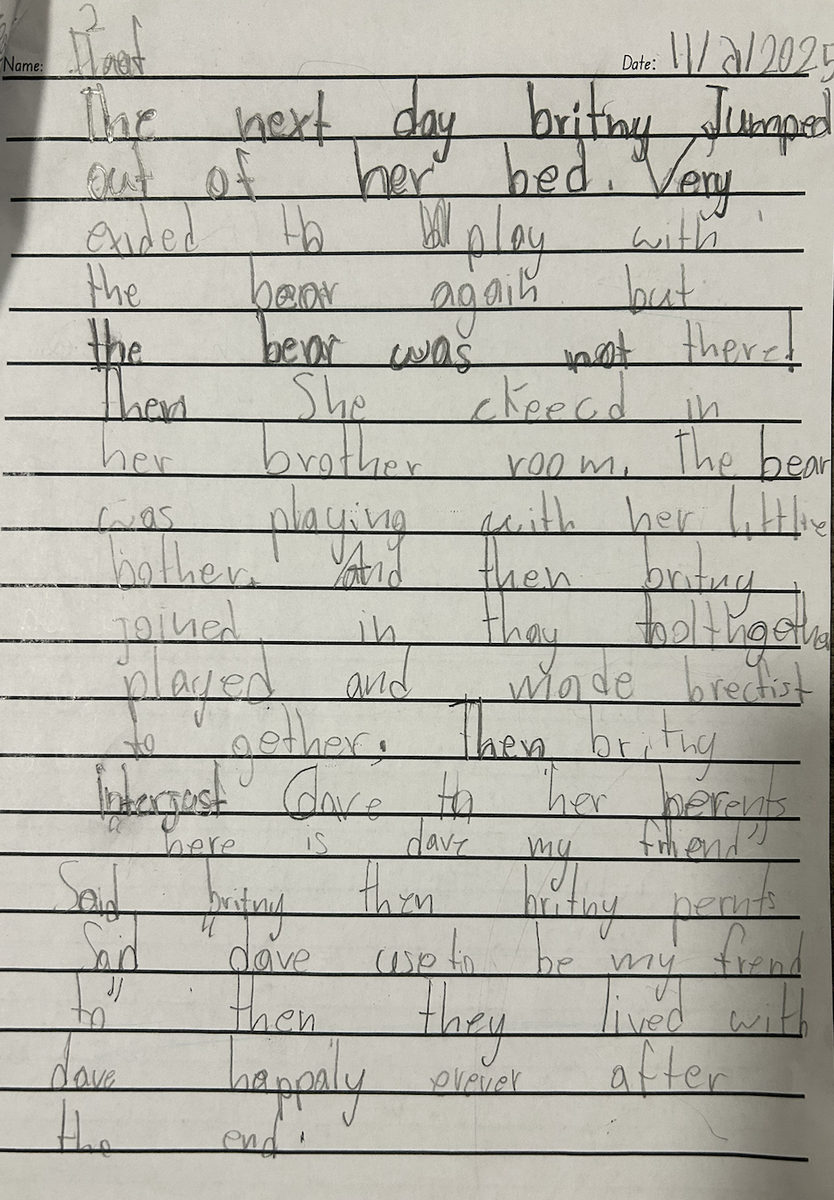 2
Name:
Date: 11/2/2025
The next day britny Jumped
out of her bed. Very
exided to play with
the bear again but
the bear was not there!
Then She ckeecd in
her brother room. The bear
was playing with her little
bother. And then britny
joined in thay
played and made brecfist
to gether. Then britny
Interjust dave to her perents
"here is dave my friend"
Said britny then britny pernts
Said "dave use to be my frend
to" then they lived with
dave happaly erever after
the end.